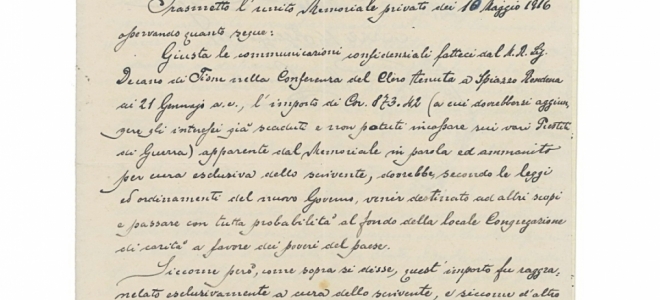 Trasmetto l'unito Memoriale privato dei 18 Maggio 1916
osservando quanto segue:
Giusta le communicazioni confidenziali fatteci dal M. R. Sig.
Decano di Tione nella Conferenza del Clero tenuta a Spiazzo Rendena
ai 21 Gennajo a. c., l'importo di Cor. 873.42 (a cui dovrebbersi aggiun-
gere gli interessi già scaduti e non potuti incassare sui vari Prestiti
di Guerra) apparente dal Memoriale in parola ed ammanito
per cura esclusiva dello scrivente, dovrebbe, secondo le leggi
ed ordinamenti del nuovo Governo, venir destinato ad altri scopi
e passare con tutta probabilità al fondo della locale Congregazione
di carità a favore dei poveri del paese.
Siccome però, come sopra si disse, quest'importo fu raggra-
nelato esclusivamente a cura dello scrivente, e siccome d'altro